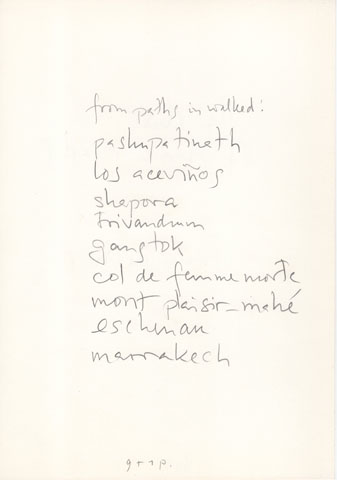 from paths in walked:
pashupatineth
los aceviños
shapora
trivandrum
gangtok
col de femme morte
mont plaisir-mahé
eschman
marrakech